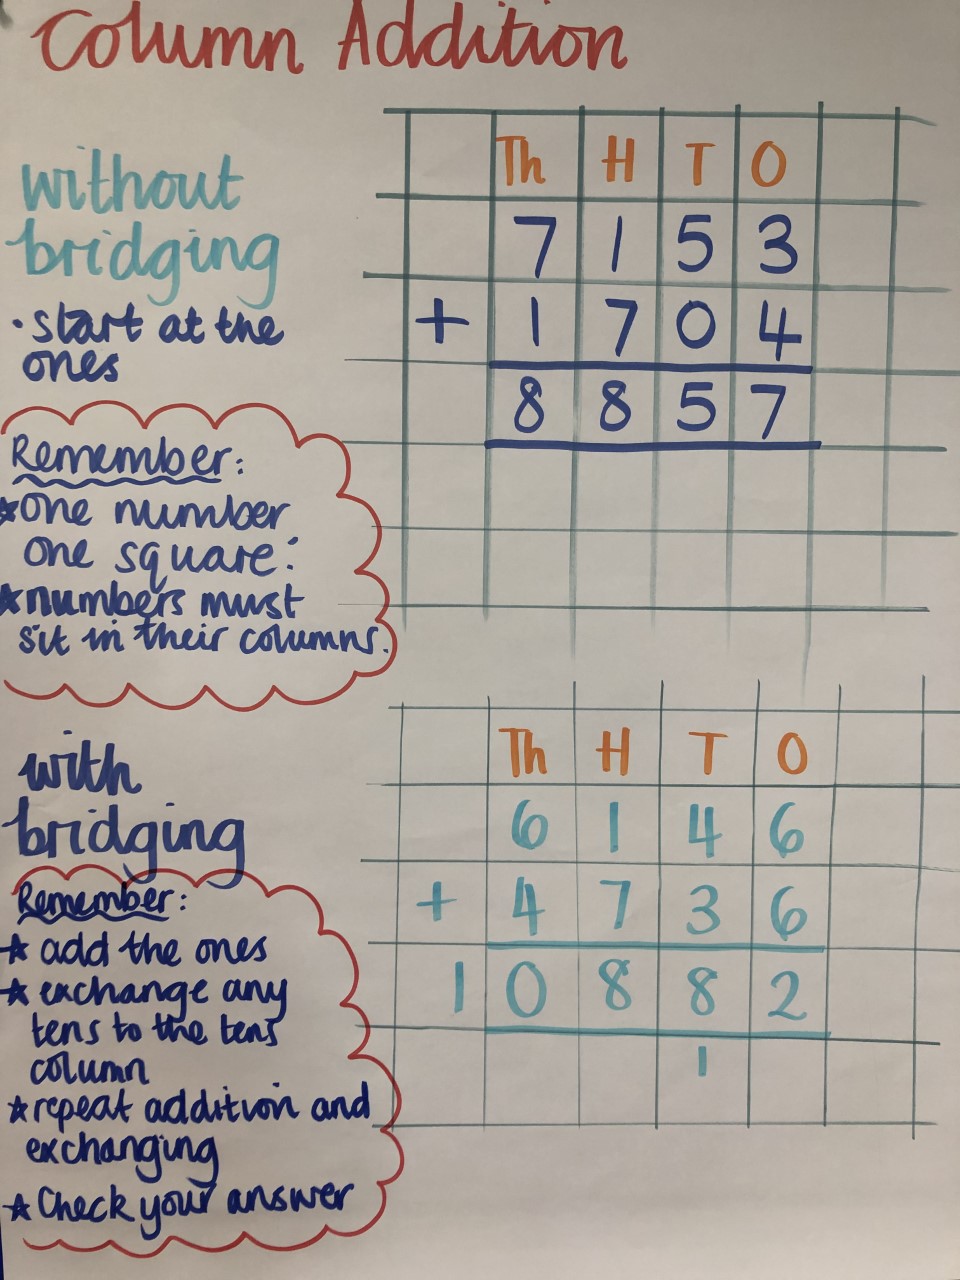 Column Addition
without
bridging
· start at the
ones
Remember:
★one number
one square:
★numbers must
sit in their columns.
Th H T O
7 1 5 3
+ 1 7 0 4
8 8 5 7
with
bridging
Remember:
★ add the ones
★ exchange any
tens to the tens
column
★repeat addition and
exchanging
★ Check your answer
Th H T O
6 1 4 6
+ 4 7 3 6
1 0 8 8 2
1